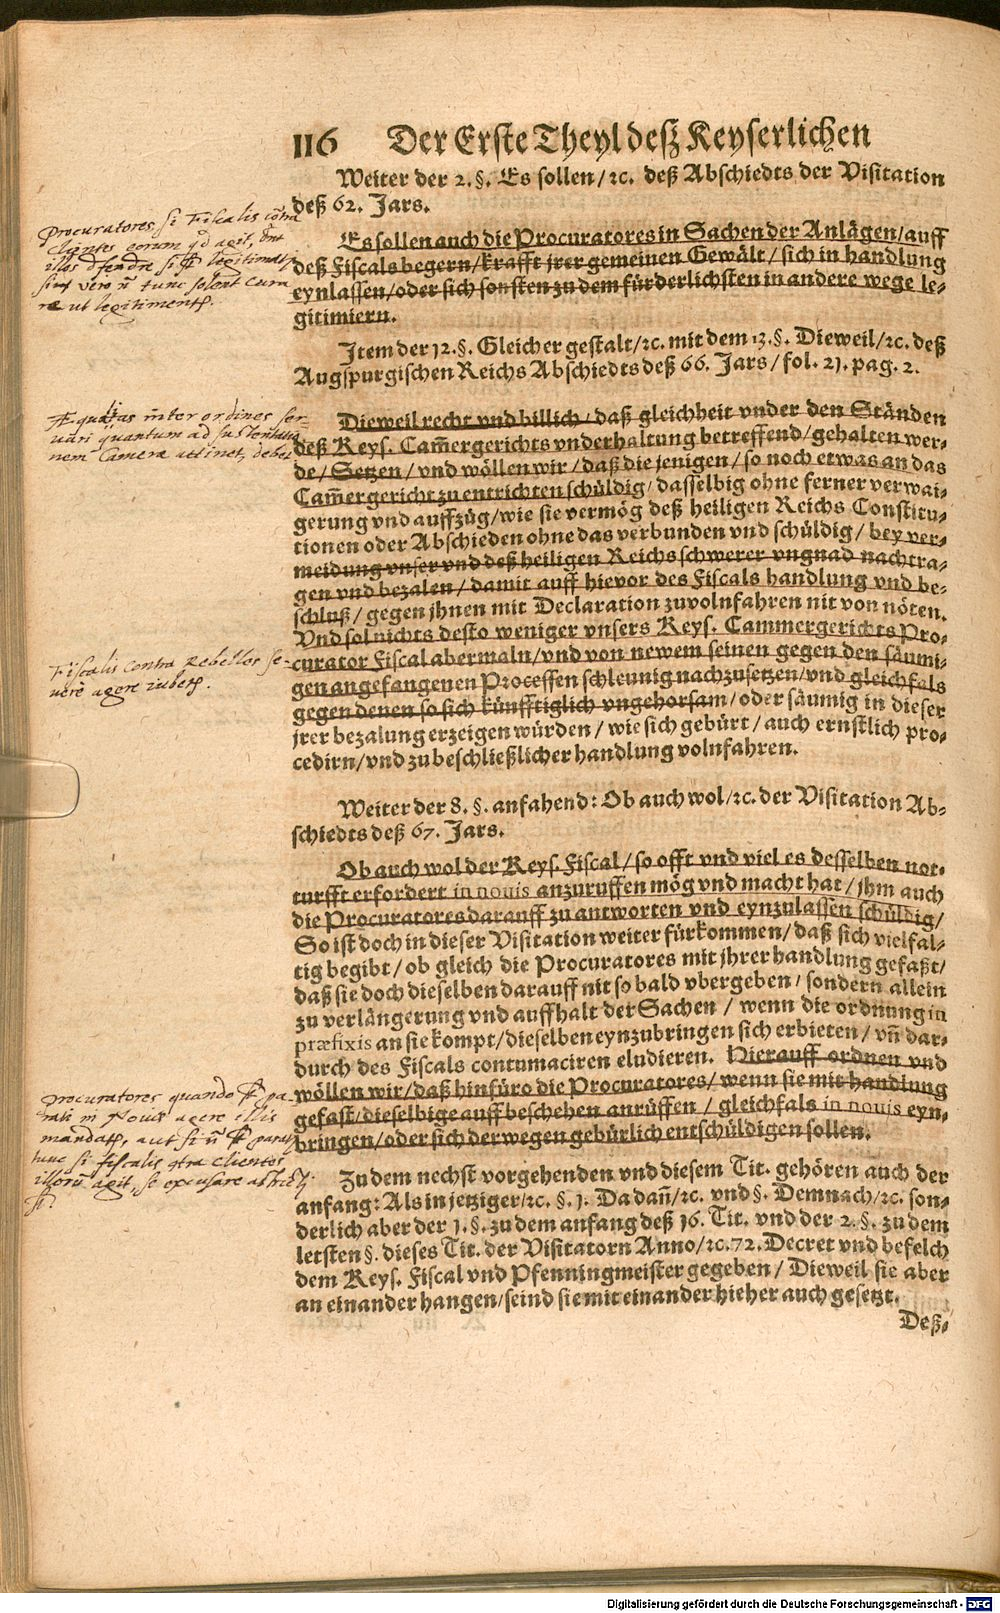 116 Der Erste Theyl deß Keyserlichen
Weiter der 2. §. Es sollen / ꝛc. deß Abschiedts der Visitation
deß 62. Jars.
Procuratores, si Fiscalis cõtra
clientes eorum qd agit,
illos dfendre si
sint vero ñ tunc solent cura
re ut legitiment
Es sollen auch die Procuratores in Sachen der Anlägen / auff
deß Fiscals begern / krafft jrer gemeinen Gewält / sich in handlung
eynlassen / oder sich sonsten zu dem fürderlichsten in andere wege le⸗
gitimiern.
Jtem der 12. §. Gleicher gestalt / ꝛc. mit dem 13. §. Dieweil / ꝛc. deß
Augspurgischen Reichs Abschiedts deß 66. Jars / fol. 21. pag. 2.
Æqualitas inter ordines ser-
vari quantum ad sustentatio
nem Cameræ attinet, debet
Dieweil recht vnd billich / daß gleichheit vnder den Ständen
deß Keys. Cam̃ergerichts vnderhaltung betreffend / gehalten wer⸗
de / Setzen / vnd wöllen wir / daß die jenigen / so noch etwas an das
Cam̃ergericht zu entrichten schüldig / dasselbig ohne ferner verwai⸗
gerung vnd auffzüg / wie sie vermög deß heiligen Reichs Constitu⸗
tionen oder Abschieden ohne das verbunden vnd schüldig / bey ver⸗
meidung vnser vnd deß heiligen Reichs schwerer vngnad nachtra⸗
gen vnd bezalen / damit auff hievor des Fiscals handlung vnd be⸗
schluß / gegen jhnen mit Declaration zuvolnfahren nit von nöten.
Vnd sol nichts desto weniger vnsers Keys. Cammergerichts Pro⸗
curator Fiscal abermaln / vnd von newem seinen gegen den säumi⸗
gen angefangenen Processen schleunig nachzusetzen / vnd gleichfals
gegen denen so sich künfftiglich vngehorsam / oder säumig in dieser
jrer bezalung erzeigen würden / wie sich gebürt / auch ernstlich pro⸗
cedirn / vnd zu beschließlicher handlung volnfahren.
Fiscalis contra Rebelles se-
vere agere iubet.
Weiter der 8. §. anfahend: Ob auch wol / ꝛc. der Visitation Ab⸗
schiedts deß 67. Jars.
Ob auch wol der Keys. Fiscal / so offt vnd viel es desselben not⸗
turfft erfordert in nouis anzuruffen mög vnd macht hat / jhm auch
die Procuratores darauff zu antworten vnd eynzulassen schüldig /
So ist doch in dieser Visitation weiter fürkommen / daß sich vielfal⸗
tig begibt / ob gleich die Procuratores mit jhrer handlung gefaßt /
daß sie doch dieselben darauff nit so bald vbergeben / sondern allein
zu verlängerung vnd auffhalt der Sachen / wenn die ordnung in
præfixis an sie kompt / dieselben eynzubringen sich erbieten / vñ dar⸗
durch des Fiscals contumaciren eludieren. Hierauff ordnen vnd
wöllen wir / daß hinfüro die Procuratores / wenn sie mit handlung
gefast / dieselbige auff beschehen anrüffen / gleichfals in nouis eyn⸗
bringen / oder sich derwegen gebürlich entschüldigen sollen.
procuratores quando pa-
rati in Novis agere illis
mandat, aut si ñ parati
tunc si fiscalis contra clientes
illorũ agit, se excusare
Zu dem nechst vorgehenden vnd diesem Tit. gehören auch der
anfang: Als in jetziger / ꝛc. §. 1. Da dañ / ꝛc. vnd §. Demnach / ꝛc. son⸗
derlich aber der 1. §. zu dem anfang deß 16. Tit. vnd der 2. §. zu dem
letsten §. dieses Tit. der Visitatorn Anno / ꝛc. 72. Decret vnd befelch
dem Keys. Fiscal vnd Pfenningmeister gegeben / Dieweil sie aber
an einander hangen / seind sie mit einander hieher auch gesetzt.
Deß⸗
Digitalisierung gefördert durch die Deutsche Forschungsgemeinschaft - DFG